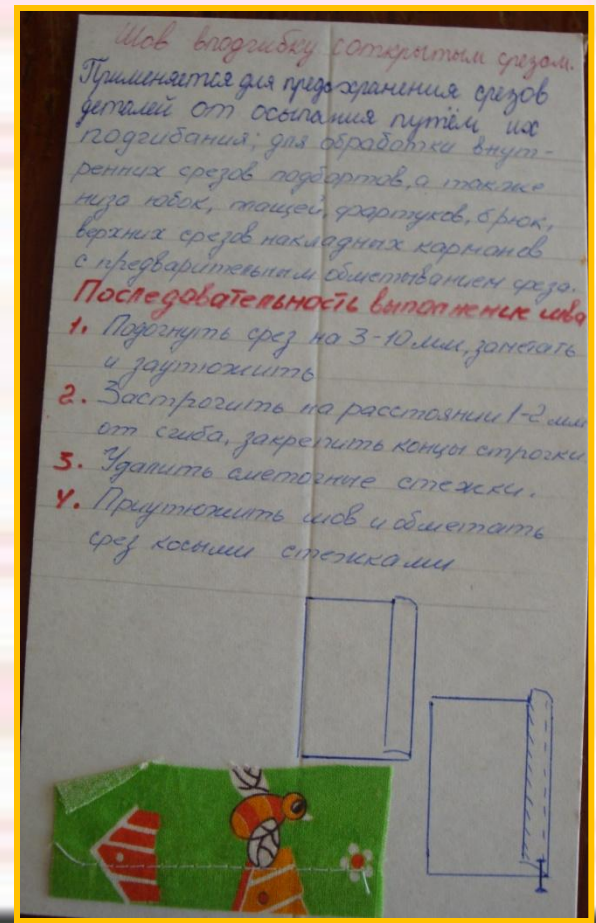 Шов вподгибку с открытым срезом.
Применяется для предохранения срезов
деталей от осыпания путём их
подгибания; для обработки внут-
ренних срезов подбортов, а также
низа юбок, плащей, фартуков, брюк,
верхних срезов накладных карманов
с предварительным обмётыванием среза.
Последовательность выполнение шва
1. Подогнуть срез на 3-10 мм, заметать
и заутюжить
2. Застрочить на расстоянии 1-2 мм
от сгиба, закрепить концы строчки
3. Удалить сметочные стежки.
4. Приутюжить шов и обметать
срез косыми стежками